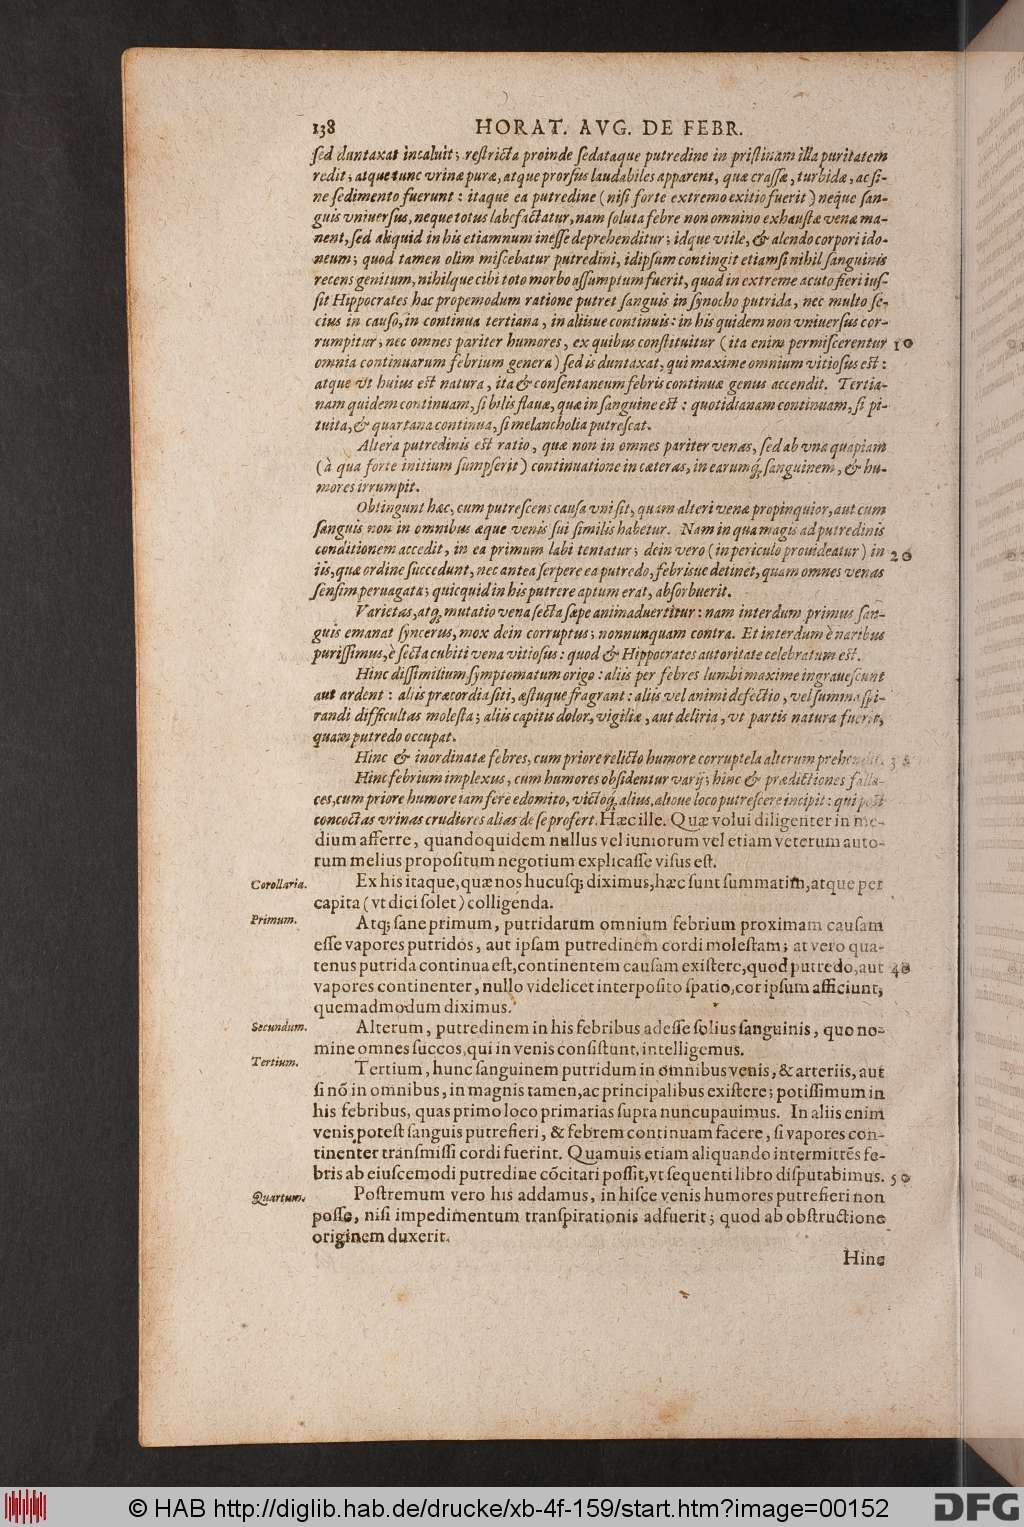 138 HORAT. AVG. DE FEBR.
sed duntaxat incaluit; restricta proinde sedataque putredine in pristinam illa puritatem
redit; atque tunc vrinæ puræ, atque prorsus laudabiles apparent, quæ crassæ, turbidæ, ac si-
ne sedimento fuerunt: itaque ea putredine (nisi forte extremo exitio fuerit) neque san-
guis vniuersus, neque totus labefactatur, nam soluta febre non omnino exhaustæ venæ ma-
nent, sed aliquid in his etiamnum inesse deprehenditur; idque vtile, & alendo corpori ido-
neum; quod tamen olim miscebatur putredini, id ipsum contingit etiamsi nihil sanguinis
recens genitum, nihilque cibi toto morbo assumptum fuerit, quod in extreme acuto fieri ius-
sit Hippocrates hac propemodum ratione putret sanguis in synocho putrida, nec multo se-
cius in causo, in continua tertiana, in aliisue continuis: in his quidem non vniuersus cor-
rumpitur; nec omnes pariter humores, ex quibus constituitur (ita enim permiscerentur 10
omnia continuarum febrium genera) sed is duntaxat, qui maxime omnium vitiosus est:
atque vt huius est natura, ita & consentaneum febris continuæ genus accendit. Tertia-
nam quidem continuam, si bilis flaua, quæ in sanguine est: quotidianam continuam, si pi-
tuita, & quartana continua, si melancholia putrescat.
Altera putredinis est ratio, quæ non in omnes pariter venas, sed ab vna quapiam
(à qua forte initium sumpserit) continuatione in cæteras, in earumq́; sanguinem, & hu-
mores irrumpit.
Obtingunt hæc, cum putrescens causa vni sit, quam alteri venæ propinquior, aut cum
sanguis non in omnibus æque venis sui similis habetur. Nam in qua magis ad putredinis
conditionem accedit, in ea primum labi tentatur; dein vero (in periculo prouideatur) in 20
iis, quæ ordine succedunt, nec antea serpere ea putredo, febrisue detinet, quam omnes venas
sensim peruagata; quicquid in his putrere aptum erat, absorbuerit.
Varietas, atq́; mutatio vena secta sæpe animaduertitur: nam interdum primus san-
guis emanat syncerus, mox dein corruptus; nonnunquam contra. Et interdum è naribus
purissimus, è secta cubiti vena vitiosus: quod & Hippocrates autoritate celebratum est.
Hinc dissimilium symptomatum origo: aliis per febres lumbi maxime ingrauescunt
aut ardent: aliis præcordia siti, æstuque fragrant: aliis vel animi defectio, vel summa spi-
randi difficultas molesta; aliis capitis dolor, vigiliæ, aut deliria, vt partis natura fuerit,
quam putredo occupat.
Hinc & inordinatæ febres, cum priore relicto humore corruptela alterum prehendit. 30
Hinc febrium implexus, cum humores obsidentur varij; hinc & prædictiones falla-
ces, cum priore humore iam fere edomito, victoq́; alius, alioue loco putrescere incipit: qui post
concoctas vrinas crudiores alias de se profert. Hæc ille. Quæ volui diligenter in me-
dium afferre, quandoquidem nullus vel iuniorum vel etiam veterum auto-
rum melius propositum negotium explicasse visus est.
Corollaria. Ex his itaque, quæ nos hucusq; diximus, hæc sunt summatim, atque per
capita (vt dici solet) colligenda.
Primum. Atq; sane primum, putridarum omnium febrium proximam causam
esse vapores putridos, aut ipsam putredinem cordi molestam; at vero qua-
tenus putrida continua est, continentem causam existere, quod putredo, aut 40
vapores continenter, nullo videlicet interposito spatio, cor ipsum afficiunt,
quemadmodum diximus.
Secundum. Alterum, putredinem in his febribus adesse solius sanguinis, quo no-
mine omnes succos, qui in venis consistunt, intelligemus.
Tertium. Tertium, hunc sanguinem putridum in omnibus venis, & arteriis, aut
si nõ in omnibus, in magnis tamen, ac principalibus existere; potissimum in
his febribus, quas primo loco primarias supra nuncupauimus. In aliis enim
venis potest sanguis putrefieri, & febrem continuam facere, si vapores con-
tinenter transmissi cordi fuerint. Quamuis etiam aliquando intermittẽs fe-
bris ab eiuscemodi putredine cõcitari possit, vt sequenti libro disputabimus. 50
Quartum. Postremum vero his addamus, in hisce venis humores putrefieri non
posse, nisi impedimentum transpirationis adfuerit; quod ab obstructione
originem duxerit.
Hinc
© HAB http://diglib.hab.de/drucke/xb-4f-159/start.htm?image=00152
DFG